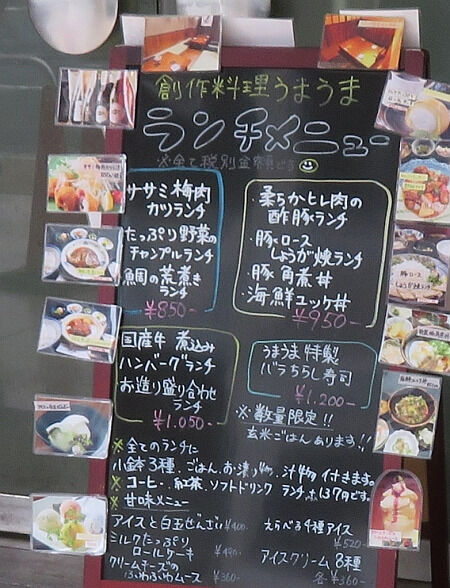 創作料理うまうま
ランチメニュー
※全て税別金額です
ササミ梅肉
カツランチ
たっぷり野菜の
チャンプルランチ
鯛の煮煮き
ランチ
¥850-
・柔らかヒレ肉の
酢豚ランチ
・豚ロース
しょうが焼ランチ
・豚角煮丼
・海鮮ユッケ丼
¥950-
国産牛 煮込み
ハンバーグランチ
お造り盛り合わせ
ランチ
¥1.050-
うまうま特製
バラちらし寿司
¥1.200-
※数量限定!!
玄米ごはんあります!!
※全てのランチに
小鉢3種、ごはん、お漬け物、汁物 付きます。
※コーヒー、紅茶、ソフトドリンク ランチ
※甘味メニュー
アイスと白玉ぜんざい ¥400-
ミルクたっぷり
ロールケーキ ¥490-
クリームチーズの
ふわふわムース ¥360-
えらべる4種アイス
¥520-
アイスクリーム 8種
各¥360-